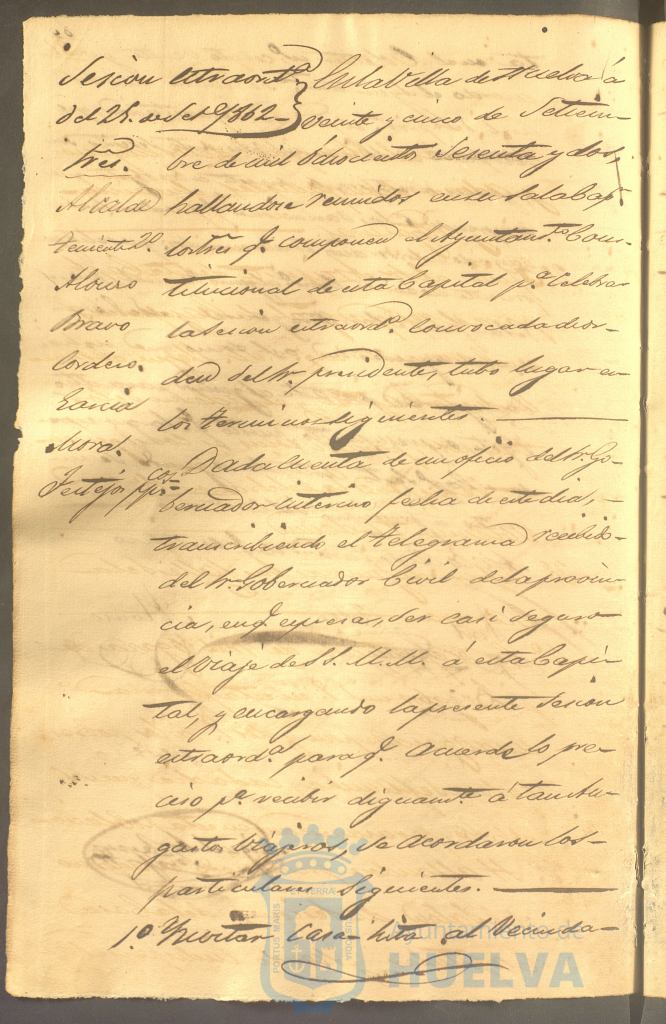 Sesion extraord.ª
del 25. de Set.e 1862-
Sres.
Alcalde
Teniente 2º
Alonso
Bravo
Cordero.
Garcia
Mora.
Festejos pp.cos
En la Villa de Huelva á
veinte y cinco de Setiem-
bre de mil ochocientos Sesenta y dos,
hallandose reunidos en su Sala Cap.r
los Sres q.e componen el Ayuntam.to Cons-
titucional de esta Capital p.a celebrar
la Sesion extraord.a convocada de or-
den del Sr. presidente, tubo lugar en
los terminos siguientes.
Dada cuenta de un oficio del Sr. Go-
bernador interino fecha de este dia,
transcribiendo el telegrama recibido
del Sr. Gobernador Civil de la provin-
cia, en q.e expresa, ser casi seguro
el viaje de S.S. M.M. á esta Capi-
tal, y encargando la presente Sesion
extraord.a para q.e acuerde lo pre-
ciso p.a recibir dignam.te á tan Au-
gustos Viageros, se acordaron los
particulares siguientes.
1.º Invitar casa-hita al Vecinda-
PORTUS MARIS
ET TERRAE
CUSTODIA
Ayuntamiento de
HUELVA